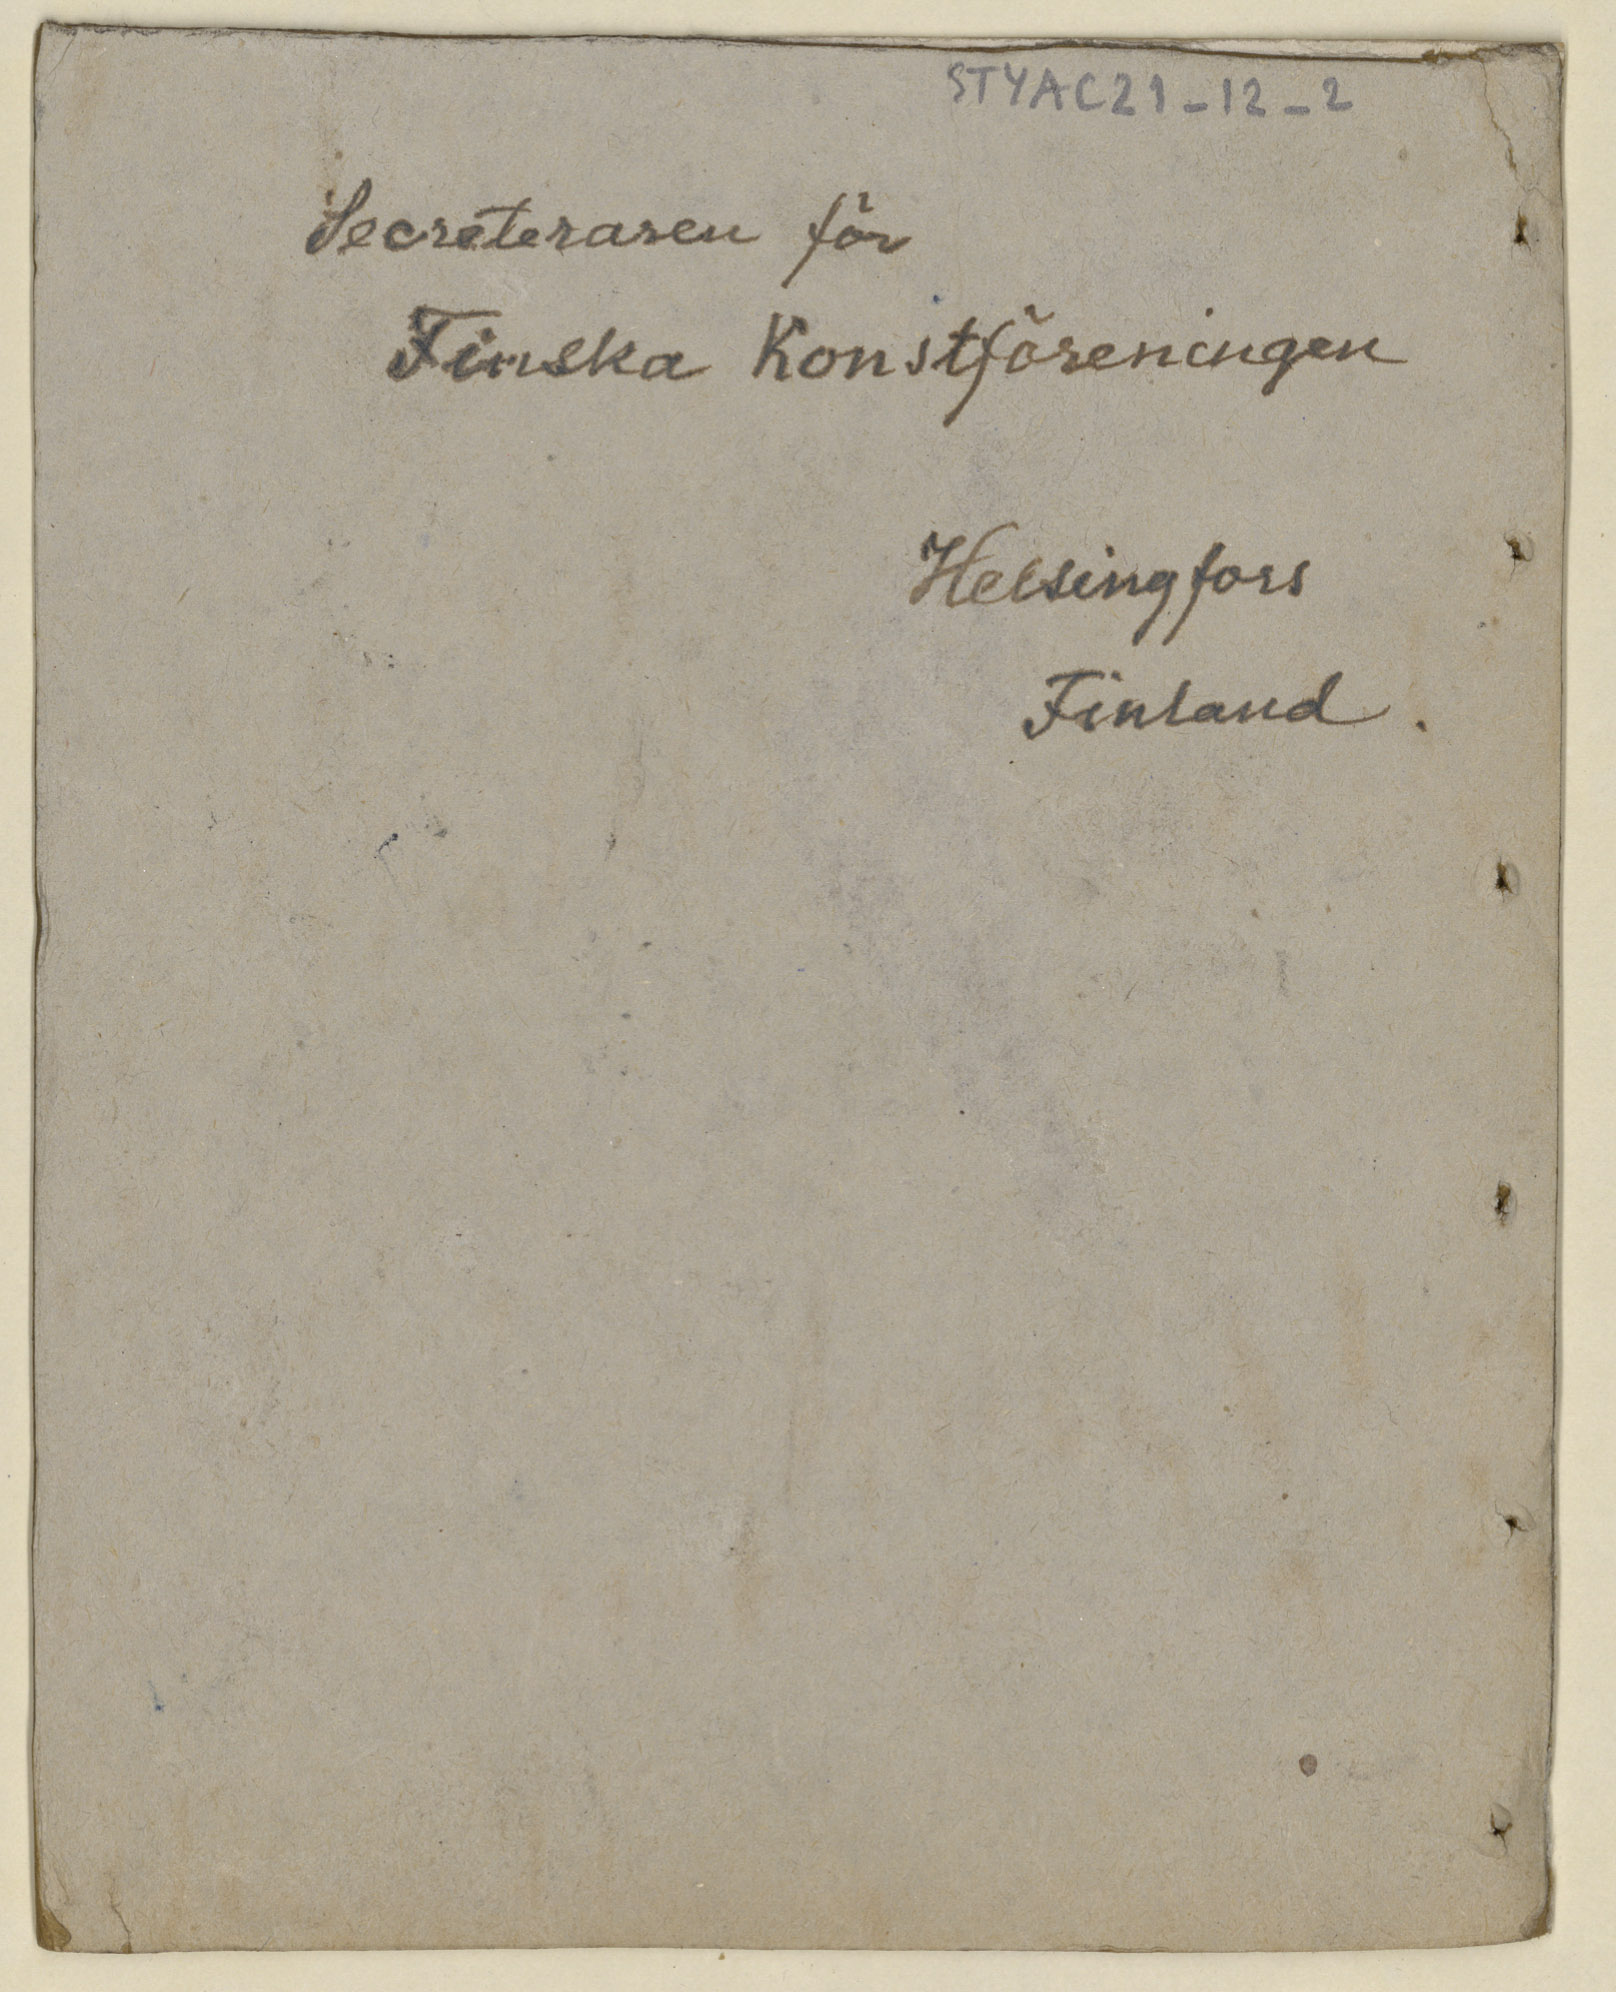 STYAC21-12-2
Secreteraren för
Finska Konstföreningen
Helsingfors
Finland.